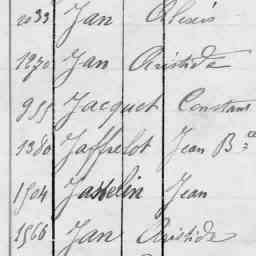 2033 Jan Alexis
1270 Jan Aristide
955 Jacquet Constant
1380 Jaffrelot Jean Bce
1504 Josselin Jean
1566 Jan Aristide